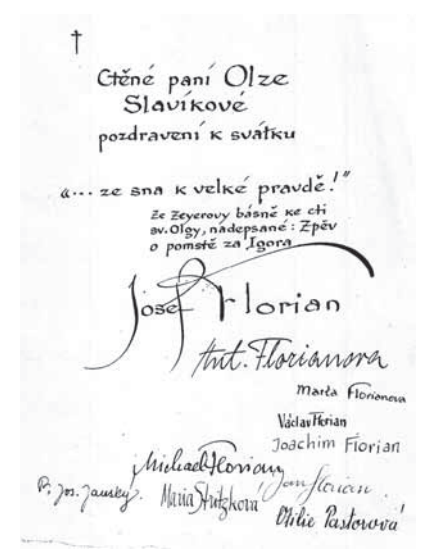 †
Ctěné paní Olze
Slavíkové
pozdravení k svátku
„... ze sna k velké pravdě!"
Ze Zeyerovy básně ke cti
sv. Olgy, nadepsané: Zpěv
o pomstě za Igora
Josef Florian
Ant. Florianova
Marta Florianova
Václav Florian
Joachim Florian
Michael Florian
Jan Florian
P. Jos. Janský.
Maria Stritzková
Otilie Pastorová